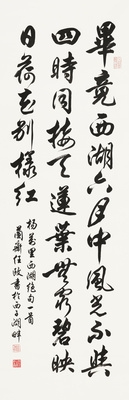 畢竟西湖六月中風光不與
四時同接天蓮葉無窮碧映
日荷花別樣紅
楊萬里西湖絕句一首
蘭齋任政書於西子湖畔